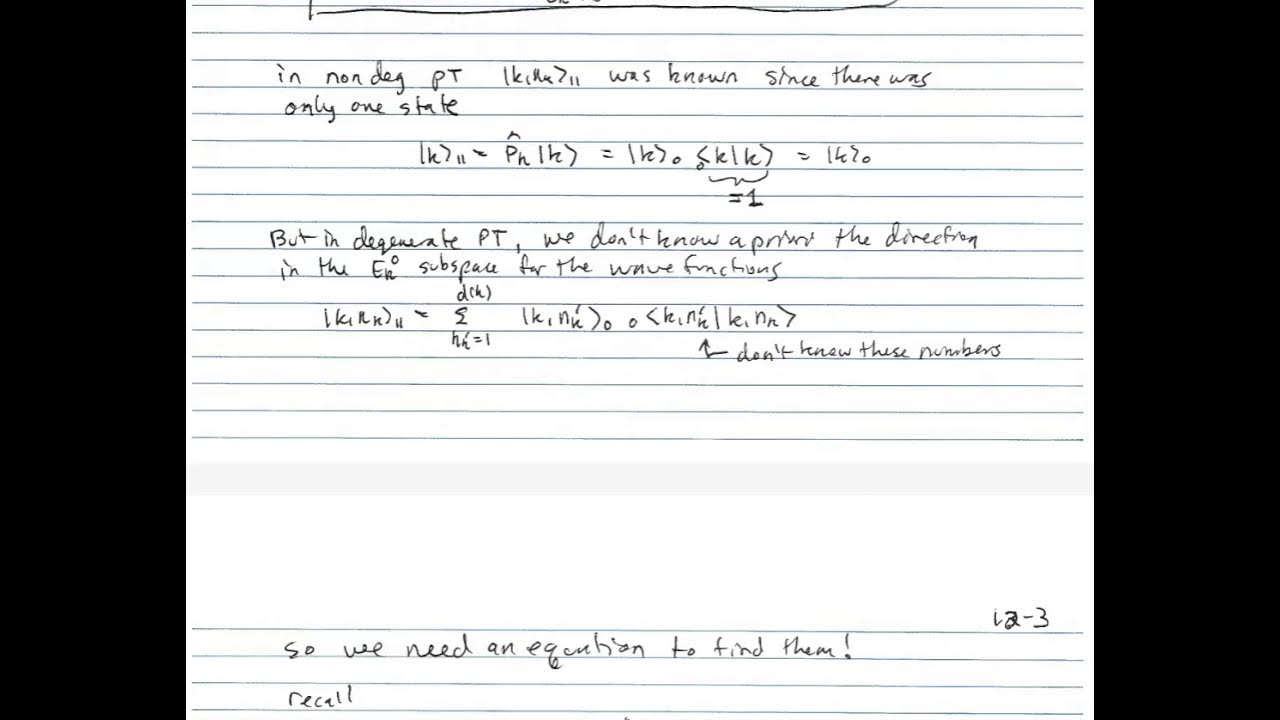 in nondeg PT |k,nₖ⟩₁₁ was known since there was
only one state
|k⟩₁₁ = P̂ₖ|k⟩ = |k⟩₀ ₀⟨k|k⟩ = |k⟩₀
=1
But in degenerate PT, we don't know a priori the direction
in the Eₖ⁰ subspace for the wavefunctions
d(k)
|k,nₖ⟩₁₁ = Σ |k,nₖ'⟩₀ ₀⟨k,nₖ'|k,nₖ⟩
nₖ'=1
↑ don't know these numbers
12-3
so we need an equation to find them!
recall